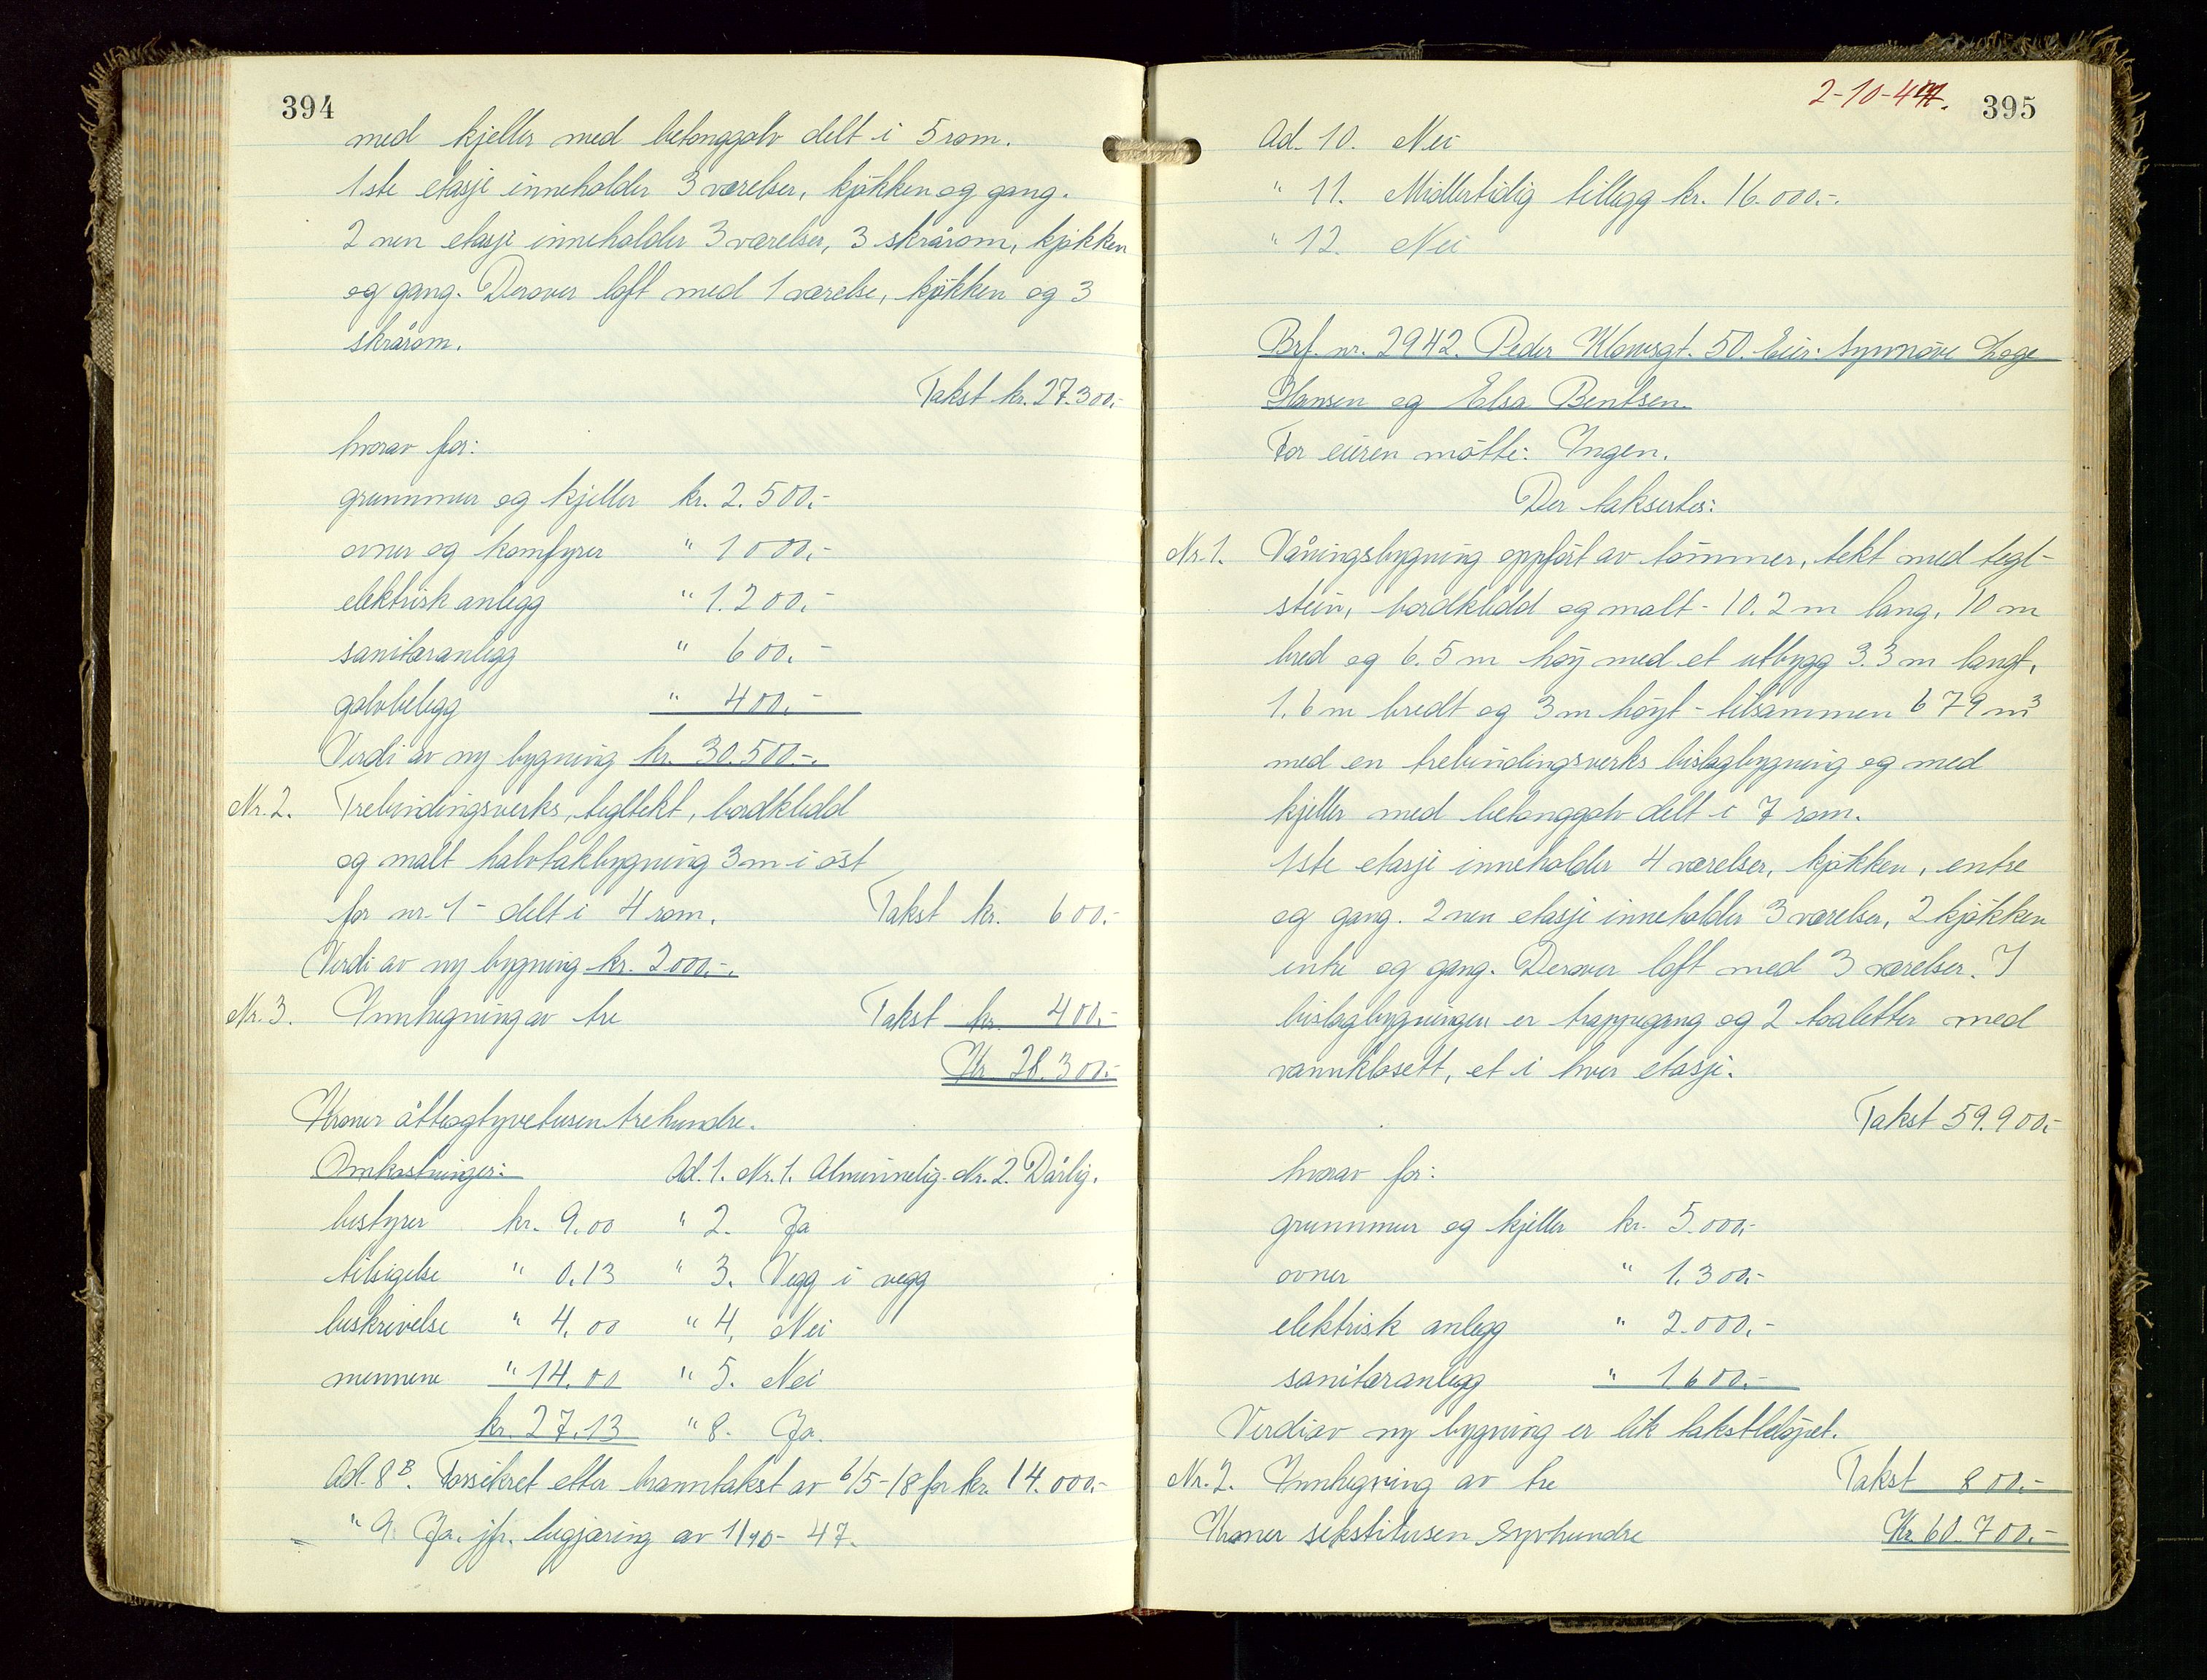 394
med kjeller med betonggolv delt i 5 rom.
1ste etasje inneholder 3 værelser, kjøkken og gang.
2 nen etasje inneholder 3 værelser, 3 skrårom, kjøkken
og gang. Derover loft med 1 værelse, kjøkken og 3
skrårom.
Takst kr. 27.300.-
hvorav for:
grunnmur og kjeller kr. 2.500.-
ovner og komfyrer " 1000.-
elektrisk anlegg " 1.200.-
sanitæranlegg " 600.-
golvbelegg " 400.-
Verdi av ny bygning kr. 30.500.-.
Nr. 2. Trebindingsverks, tegltekt, bordkledd
og malt halvtakbygning 3 m i øst
for nr. 1 - delt i 4 rom. Takst kr. 600.-
Verdi av ny bygning kr. 2000.-.
Nr. 3. Innhegning av tre Takst kr. 400.-
Kr 28.300.-
Kroner åtteogtyvetusentrehundre.
Omkostninger: Ad. 1. Nr. 1. Alminnelig. Nr. 2. Dårlig.
bestyrer kr. 9.00 " 2. Ja
tilsigelse " 0.13 " 3. Vegg i vegg
beskrivelse " 4.00 " 4. Nei
mennene " 14.00 " 5. Nei
kr. 27.13 " 8. Ja.
Ad. 8B. Forsikret etter branntakst av 6/5-18 for kr. 14.000.-
" 9. Ja. jfr. begjæring av 1/10-47.
2-10-47. 395
Ad. 10. Nei
" 11. Midlertidig tillegg kr. 16.000.-.
" 12. Nei
Brf. nr. 2942. Peder Klowsgt. 50. Eier: Synnøve Loge
Hansen og Elsa Bentsen.
For eieren møtte: Ingen.
Der takseres:
Nr. 1. Våningsbygning oppført av tømmer, tekt med tegl-
stein, bordkledd og malt - 10.2 m lang, 10 m
bred og 6.5 m høy med et utbygg 3.3 m langt,
1.6 m bredt og 3 m høyt - tilsammen 679 m3
med en trebindingsverks bislagbygning og med
kjeller med betonggolv delt i 7 rom.
1ste etasje inneholder 4 værelser, kjøkken, entre
og gang. 2 nen etasje inneholder 3 værelser, 2 kjøkken
entre og gang. Derover loft med 3 værelser. I
bislagbygningen er trappegang og 2 toaletter med
vannklosett, et i hver etasje.
Takst 59.900.-
hvorav for:
grunnmur og kjeller kr. 5.000.-
ovner " 1.300.-
elektrisk anlegg " 2.000.-
sanitæranlegg " 1600.-
Verdi av ny bygning er lik takstbeløpet.
Nr. 2. Innhegning av tre Takst 800.-
Kroner sekstitusen syvhundre Kr. 60.700.-